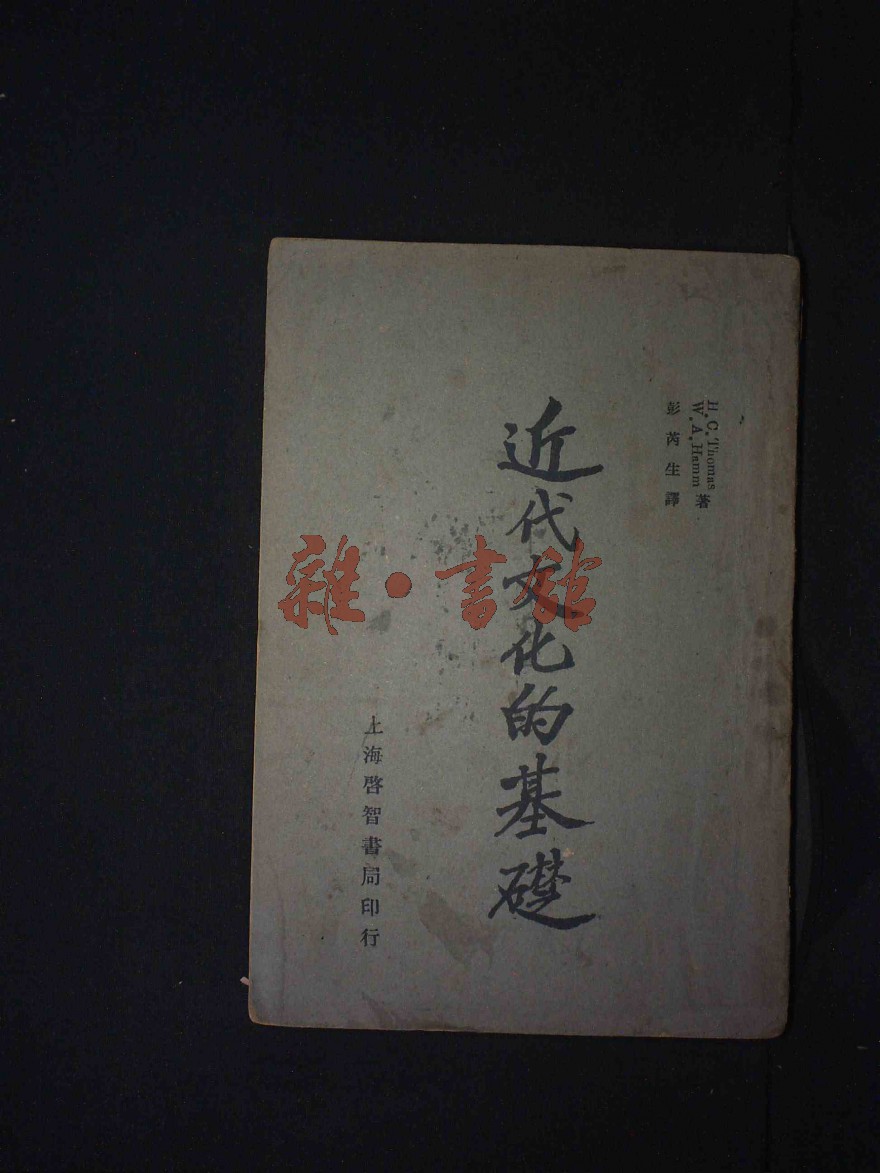 H.C.Thomas
W.A.Hamm 著
彭芮生譯
近代文化的基礎
上海啓智書局印行
雜·書館